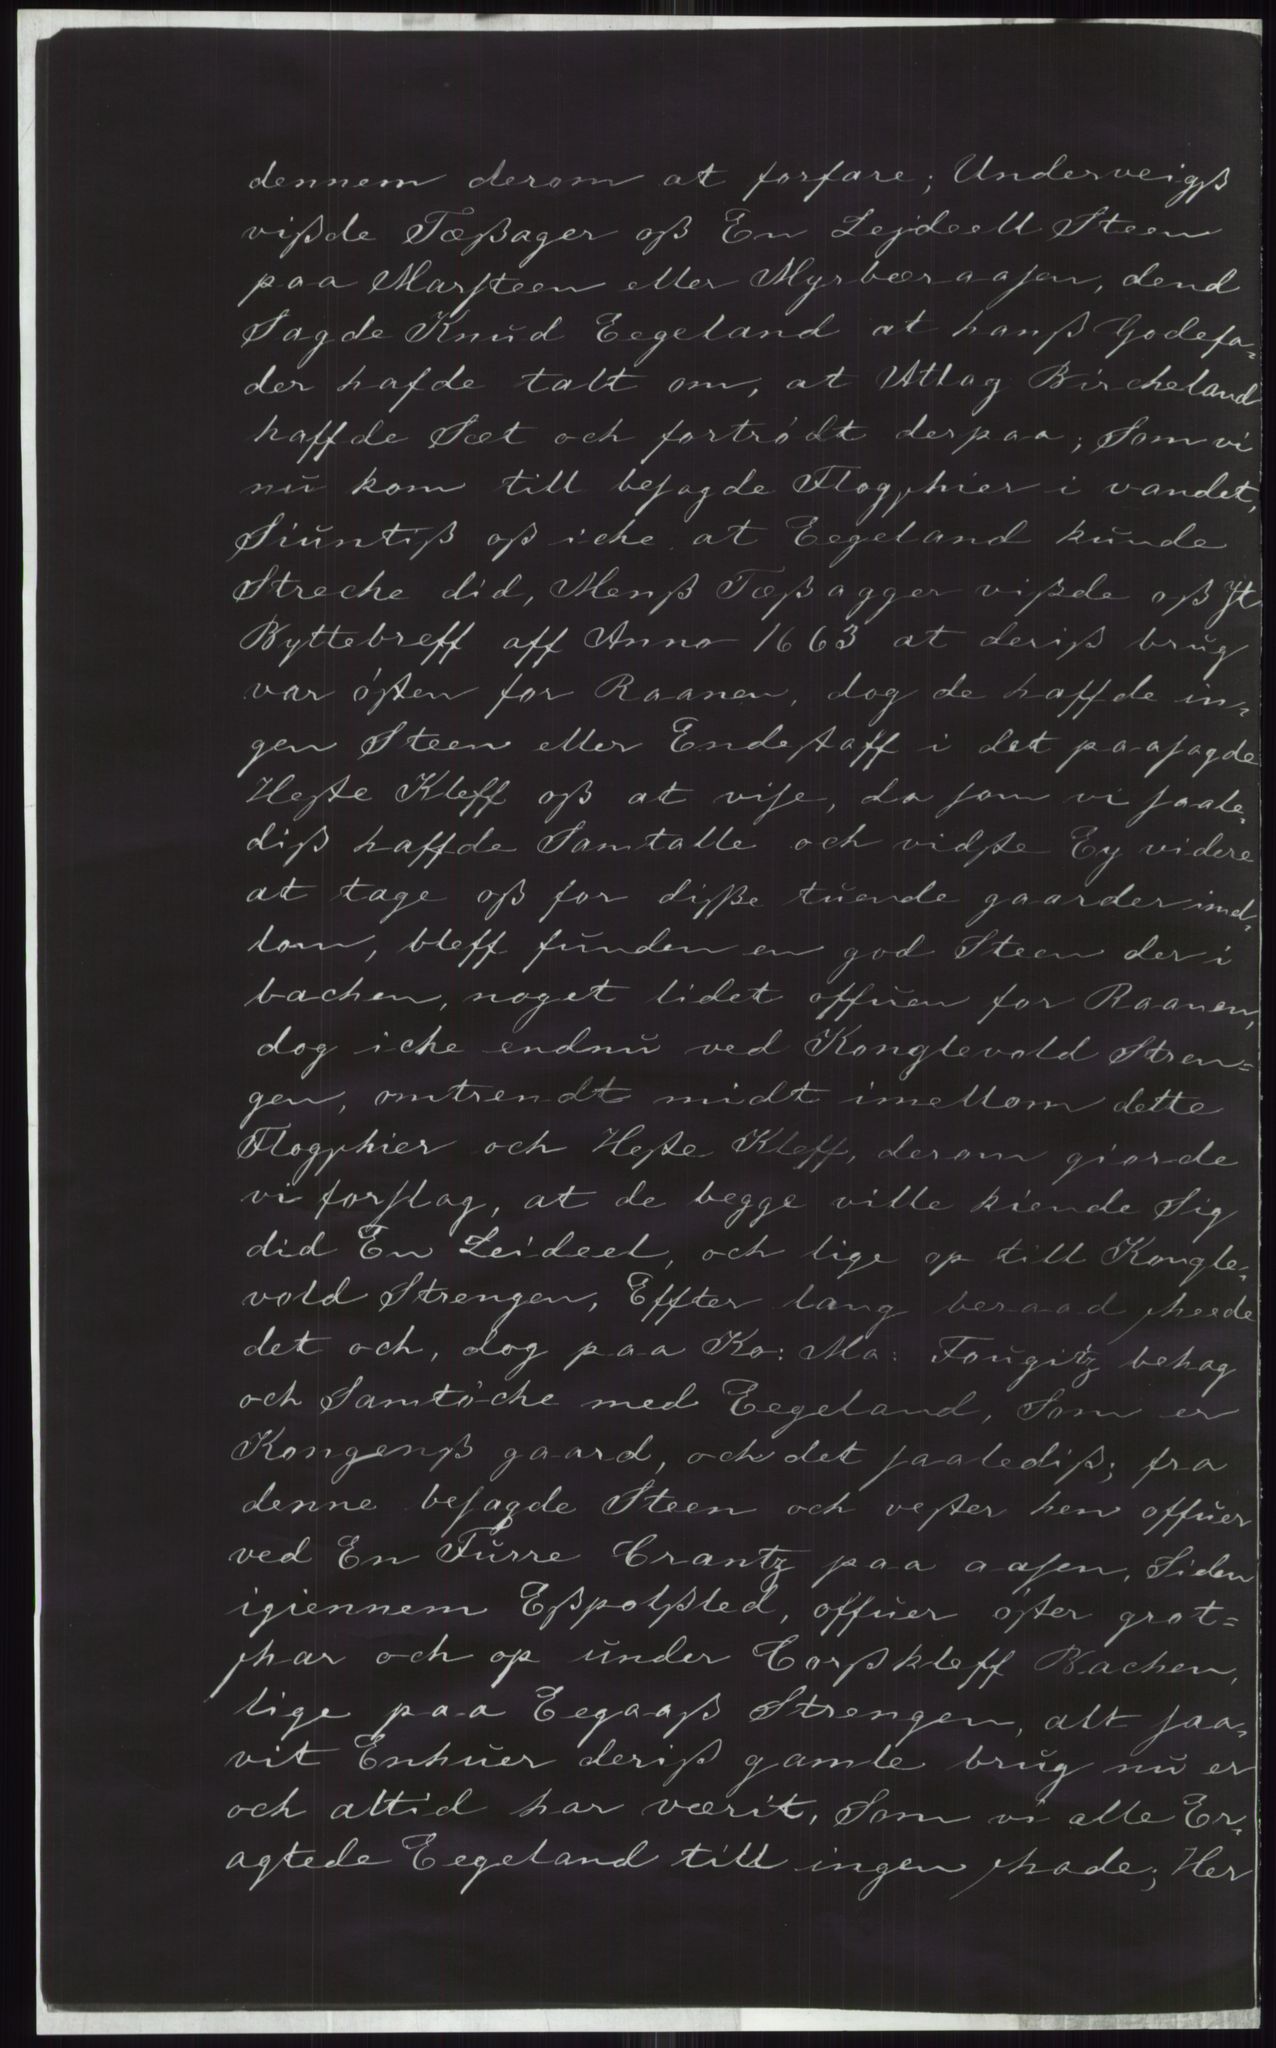 dennem derom at forfare; Underveigß
vißde Tæßager oß En Lejdeell Steen
paa Marsteen eller Myrbæraasen, dend
Sagde Knud Eegeland at hanß Godefa-
der hafde talt om, at Attag Bircheland
haffde Sæt och fortrødt derpaa; Som vi
nu kom till besagde Flogskier i vandet,
Siuntiß oß iche at Eegeland kunde
Streche did, Menß Tæßagger vißde oß It
Byttebreff aff Anno 1663 at deriß brug
var østen for Raanen, dog de haffde in-
gen Steen eller Endestaff i det paasagde
Heste Kleff oß at vise, da som vi saale-
diß haffde Samtalle och vidste Ey videre
at tage oß for disße tuende gaarder imel-
lom, bleff funden en god Steen der i
bachen, noget lidet offuen for Raanen,
dog iche endnu ved Konglevold Stren-
gen, omtrendt midt imellom dette
Flogskier och Heste Kleff, derom giorde
vi forslag, at de begge ville kiende Sig
did En Leideel, och lige op till Kongle-
vold Strengen, Effter lang beraad skeede
det och, dog paa Ko: Ma: Fougitz behag
och Samtøche med Eegeland, Som er
Kongenß gaard, och det saalediß; fra
denne besagde Steen och vester hen offuer
ved En Furre Crantz paa aasen, Siden
igiennem Eßpolßled, offuer øster grot-
skar och op under Corßkleff Bachen,
lige paa Eegaaß Strengen, alt saa-
vit Enhuer deriß gamle brug nu er
och altid har værit, Som vi alle Er-
agtede Eegeland till ingen skade; Her